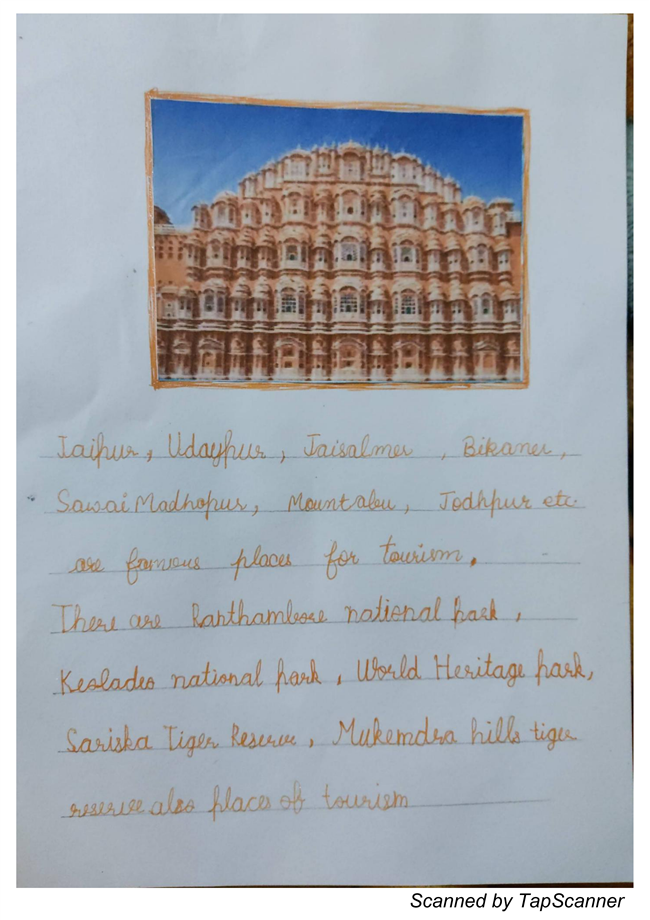 Jaipur, Udaypur, Jaisalmer , Bikaner,
Sawai Madhopur, Mount abu, Jodhpur etc.
are famous places for tourism.
There are Ranthambore national park,
Keolades national park, World Heritage park,
Sariska Tiger Reserve, Mukemdra hills tiger
reserve also places of tourism
Scanned by TapScanner